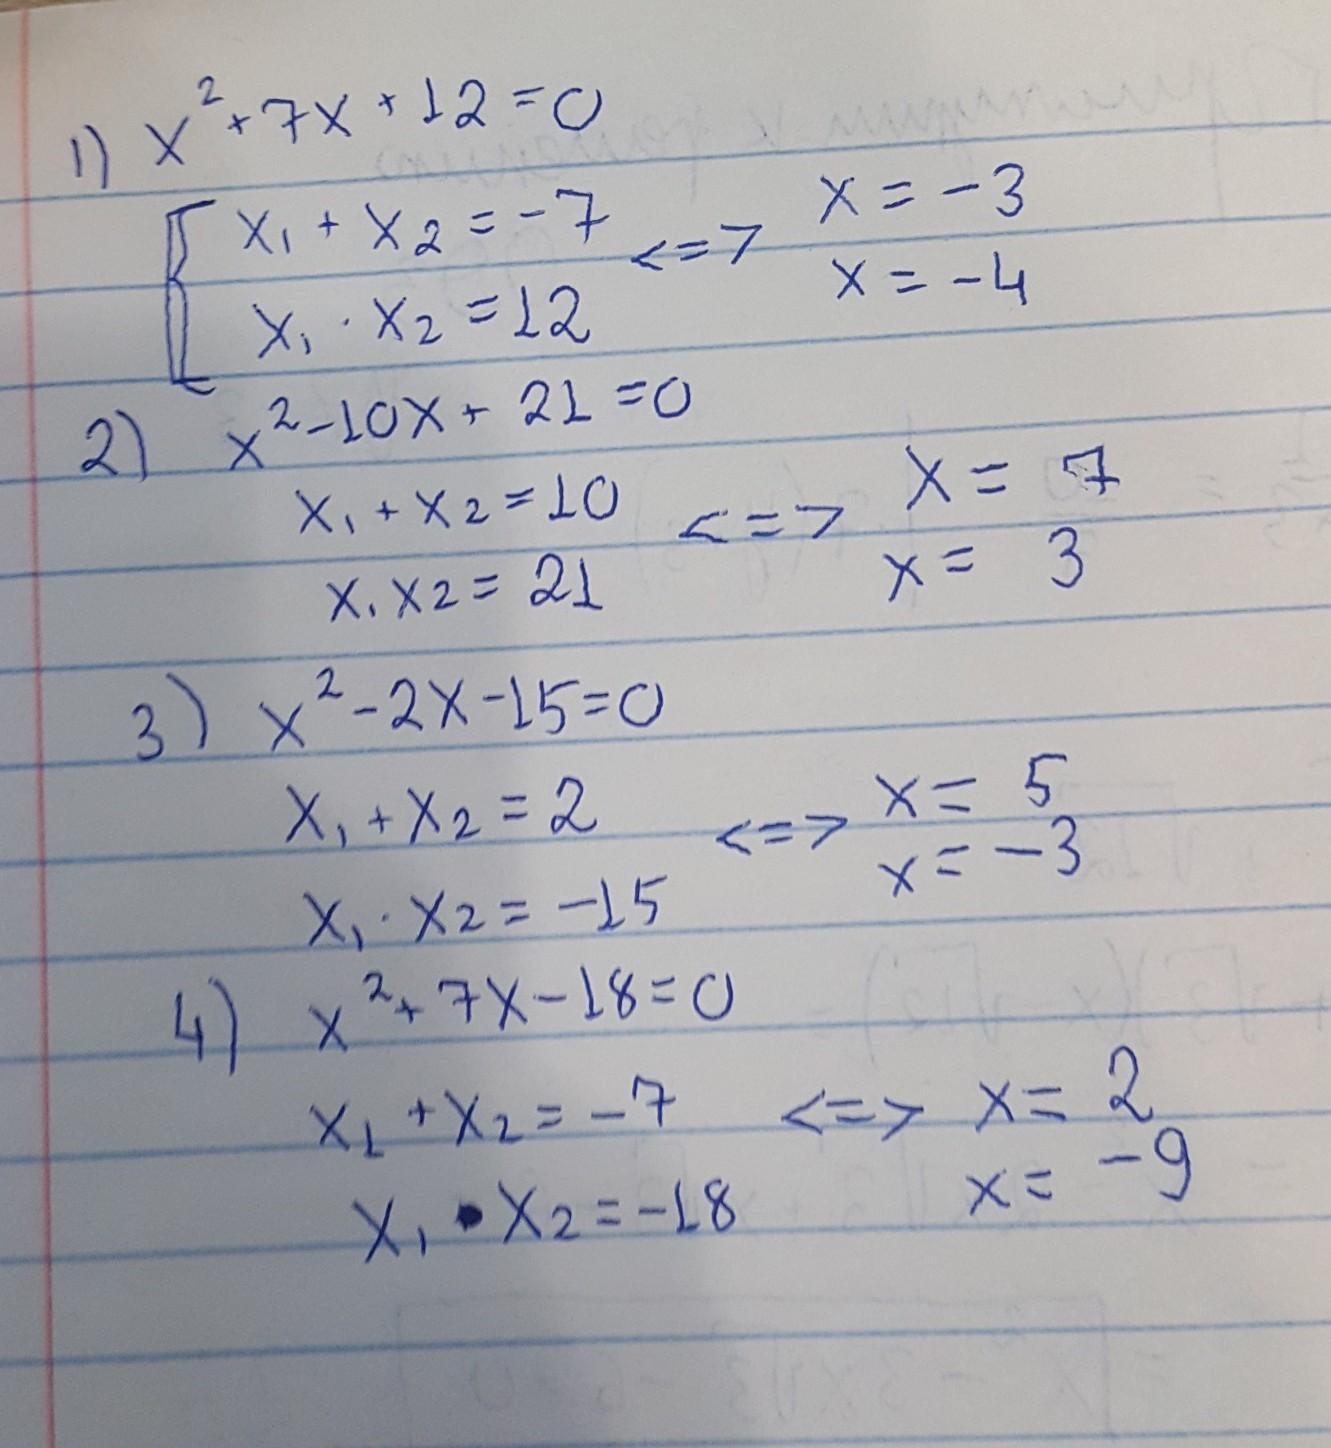 1) x²+7x+12=0
x₁+x₂=-7 <=> x=-3
x₁·x₂=12 x=-4
2) x²-10x+21=0
x₁+x₂=10 <=> x=7
x₁x₂=21 x=3
3) x²-2x-15=0
x₁+x₂=2 <=> x=5
x₁·x₂=-15 x=-3
4) x²+7x-18=0
x₁+x₂=-7 <=> x=2
x₁·x₂=-18 x=-9